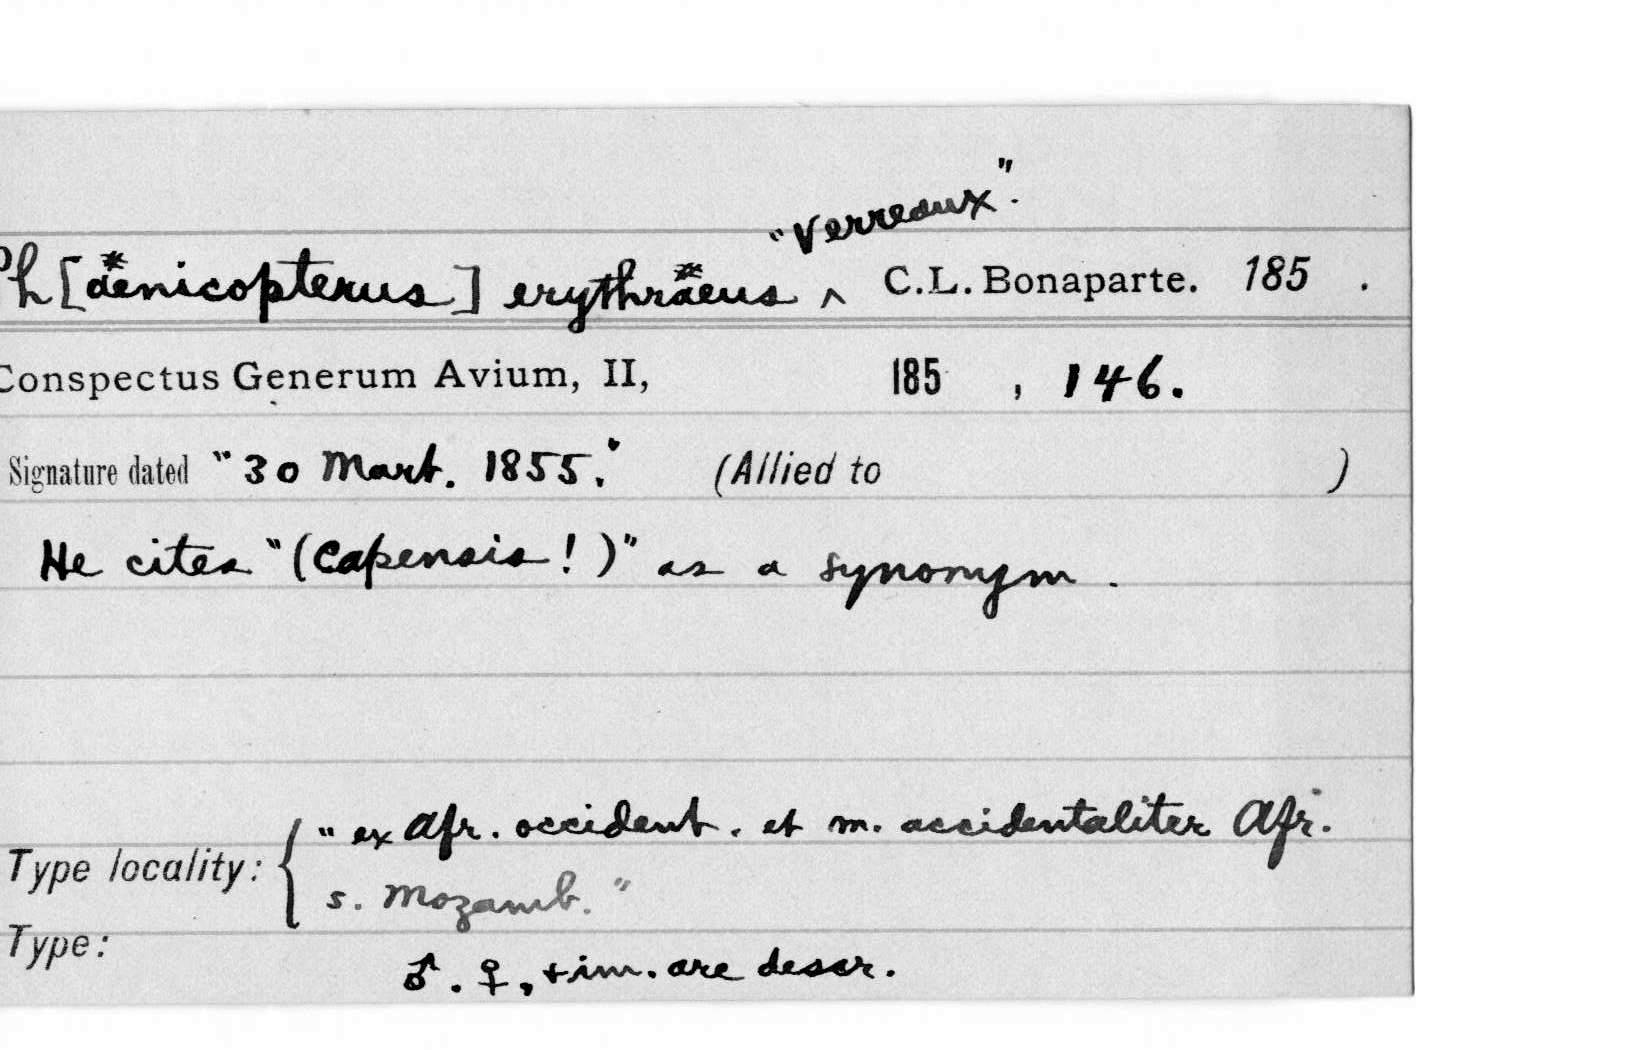 "Verreaux".
Ph[æenicopterus] erythræus ^ C.L. Bonaparte. 185 .
Conspectus Generum Avium, II, 185 , 146.
Signature dated "30 Mart. 1855." (Allied to )
He cites "(Capensis!)" as a synonym.
"ex Afr. occident. et m. accidentaliter Afr.
Type locality: {
s. Mozamb."
Type:
♂. ♀, + im. are descr.